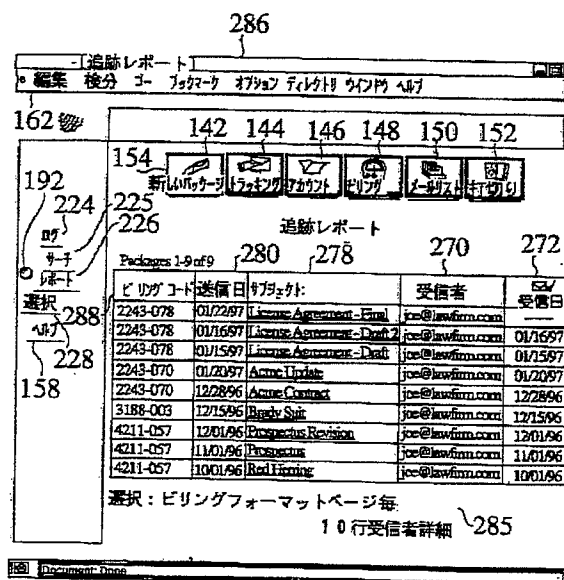 286
[追跡レポート]
編集 検分 ゴー ブックマーク オプション ディレクトリ ウインドウ ヘルプ
162
142 144 146 148 150 152
154
新しいパッケージ トラッキング アカウント ビリング メールリスト
192
224
225
226
ログ
サーチ
レポート
選択
ヘルプ
288
228
158
追跡レポート
Packages 1-9 of 9
280 278 270 272
ビリングコード 送信日 サブジェクト: 受信者 受信日
2243-078 01/22/97 License Agreement - Final joe@lawfirm.com
2243-078 01/16/97 License Agreement - Draft 2 joe@lawfirm.com 01/16/97
2243-078 01/15/97 License Agreement - Draft joe@lawfirm.com 01/15/97
2243-070 01/20/97 Acme Update joe@lawfirm.com 01/20/97
2243-070 12/28/96 Acme Contract joe@lawfirm.com 12/28/96
3188-003 12/15/96 Brady Suit joe@lawfirm.com 12/15/96
4211-057 12/01/96 Prospectus Revision joe@lawfirm.com 12/01/96
4211-057 11/01/96 Prospectus joe@lawfirm.com 11/01/96
4211-057 10/01/96 Red Herring joe@lawfirm.com 10/01/96
選択:ビリングフォーマットページ毎
10行受信者詳細
285
Document: Done